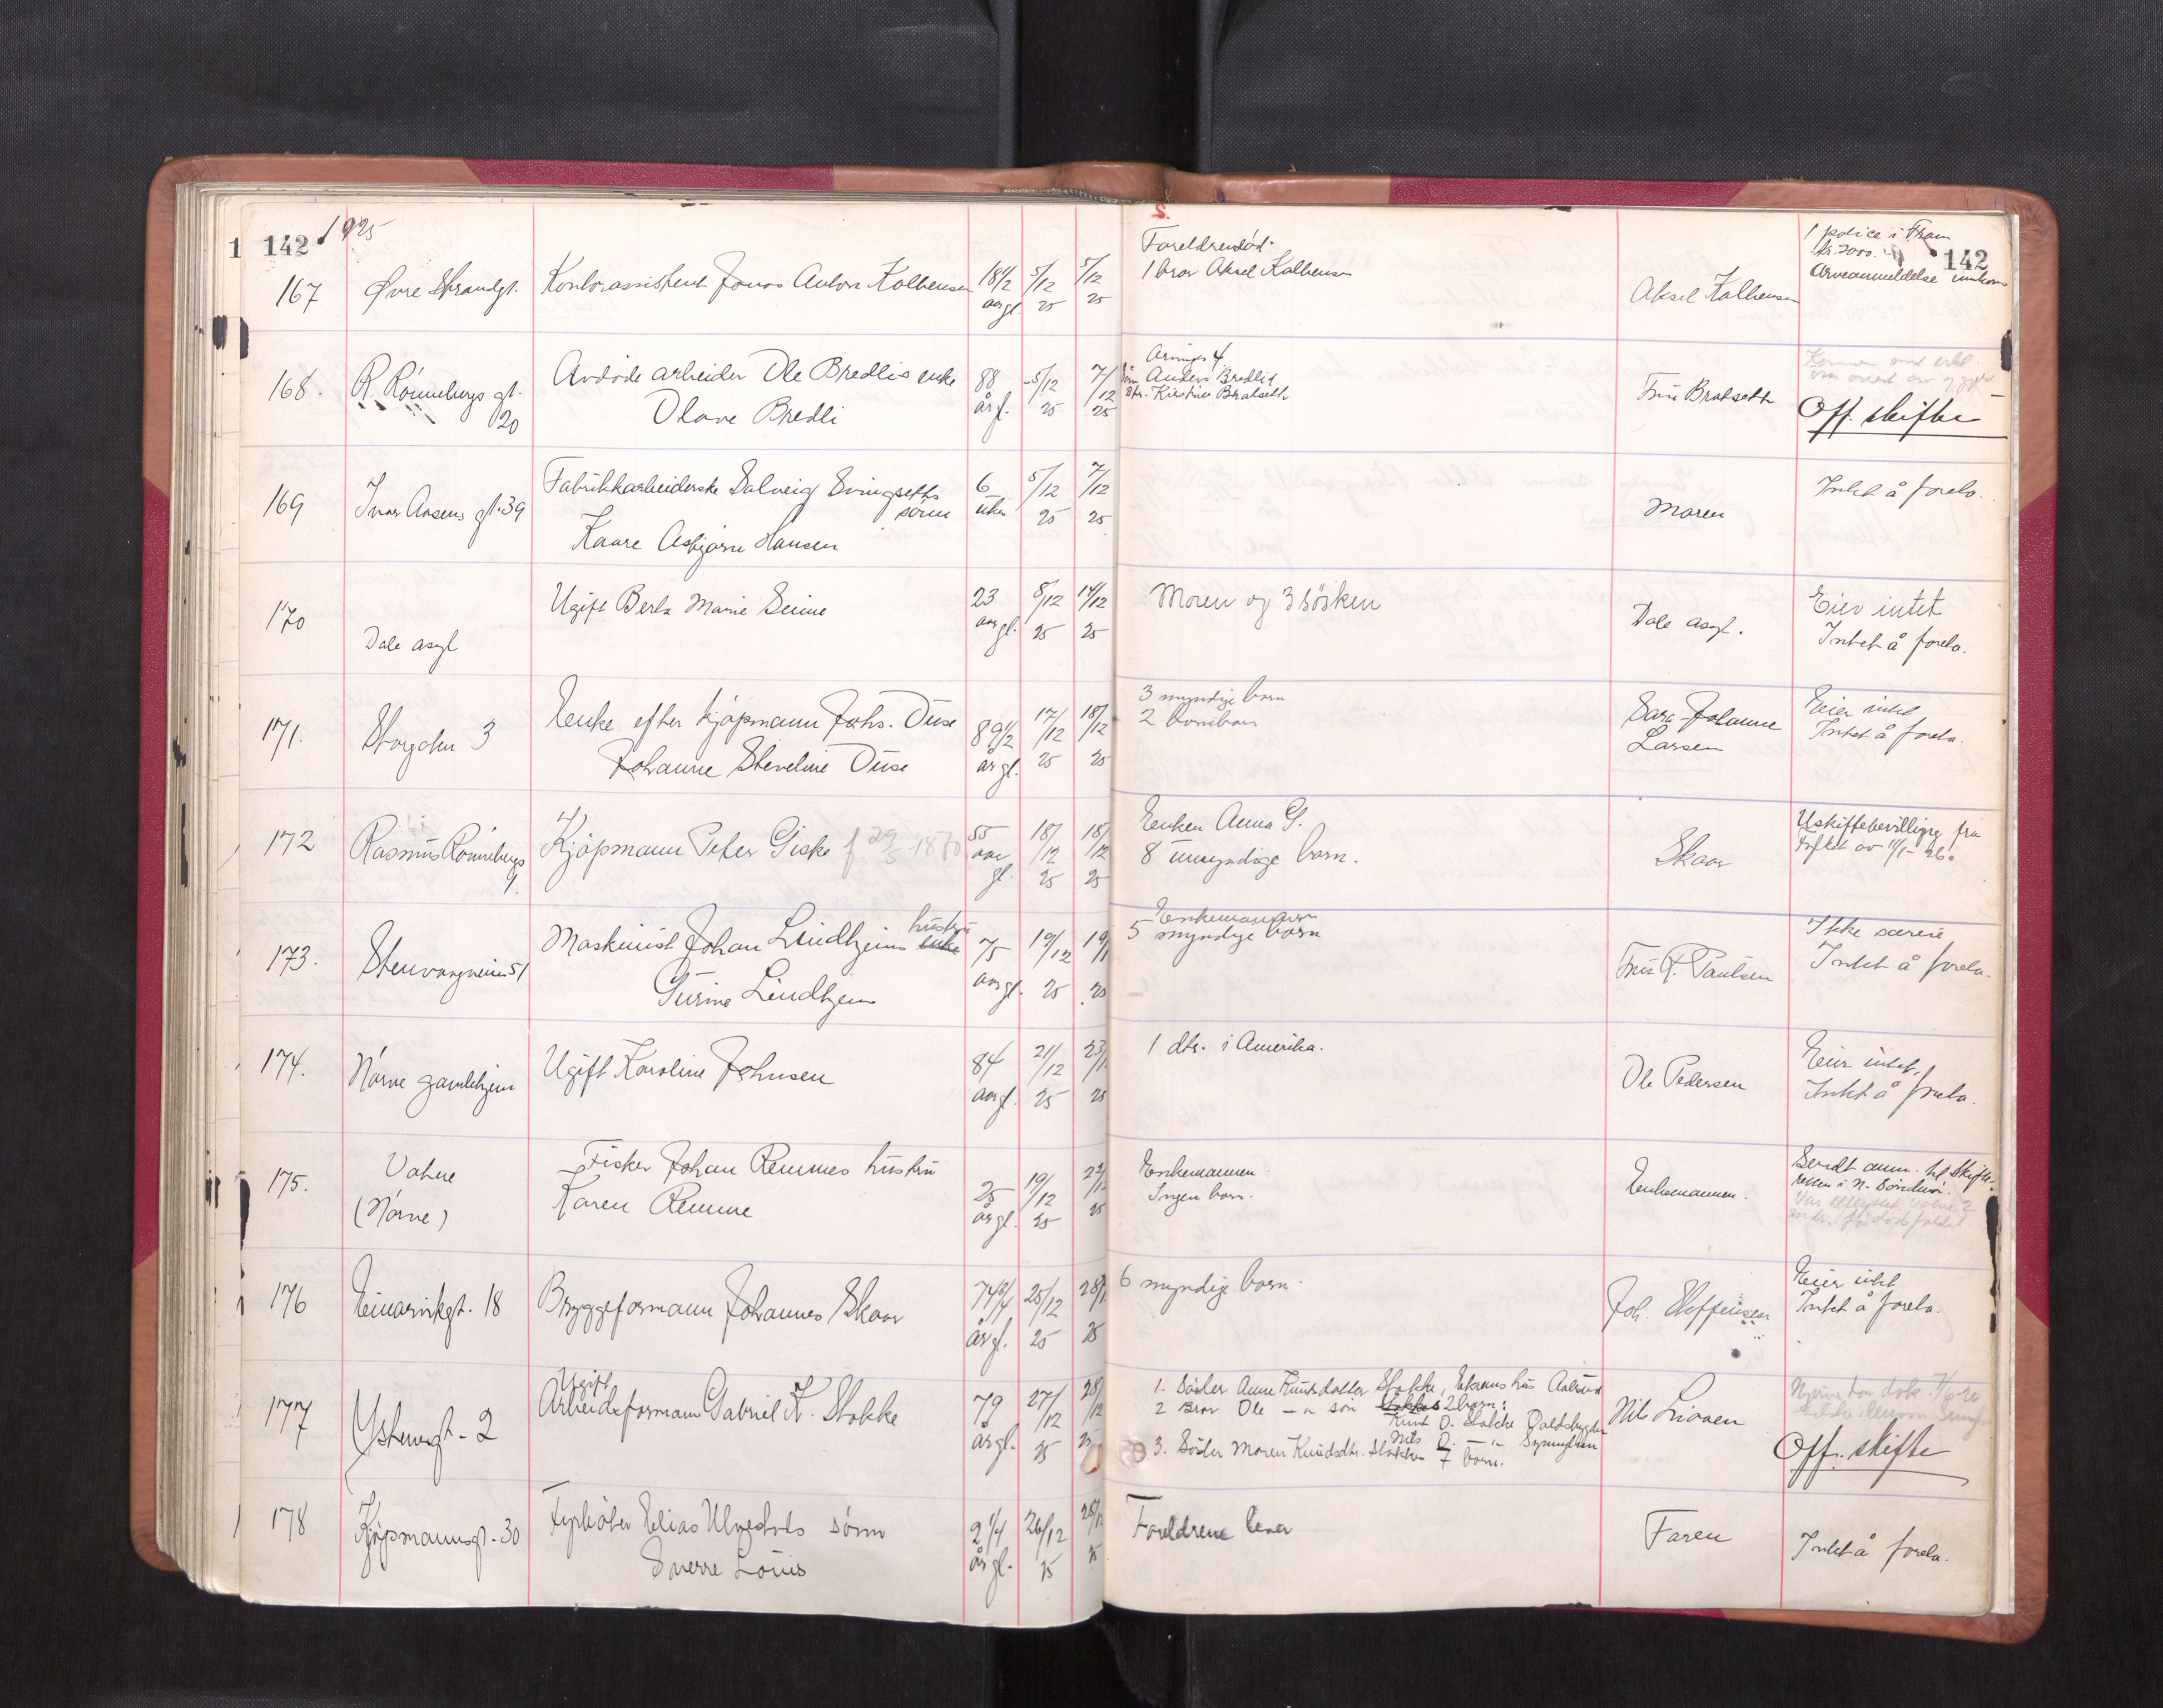 1 142 1925
S.
142
167 Øvre Strandgt. Kontorassistent Jonas Anton Kolbensen 18 1/2 aar gl. 5/12 25 5/12 25
Foreldre død.
1 bror Aksel Kolbensen
Aksel Kolbensen
1 police i Fram
kr. 2000.
Arveanmeldelse
168. R. Rønnebergs gt. 20
Avdøde arbeider Ole Bredlis enke
Olave Bredli
88 år gl. 5/12 25 7/12 25
Arvinger 4
Sønn Anders Bredli
dtr. Kristine Bratseth
Fru Bratseth
Off. skifte
169 Ivar Aasens gt. 39
Fabrikkarbeiderske Solveig Svingseths sønn
Kaare Asbjørn Hansen
6 uker 5/12 25 7/12 25
Moren
Intet å foreta.
170 Dale asyl
Ugift Berta Marie
23 aar gl. 8/12 25 14/12 25
Moren og 3 søsken
Dale asyl.
Eier intet
Intet å foreta.
171. 3
Enke efter kjøpmann Johs. Duse
Johanne Steveline Duse
89 1/2 år gl. 17/12 25 18/12 25
3 myndige barn
2 barnebarn
Sara Johanne
Larsen
Eier intet
Intet å foreta.
172 Rasmus Rønnebergs
Kjøpmann Peter Giske f. 29/5 1870
55 aar gl. 18/12 25 18/12 25
Enken Anna G.
8 umyndige barn.
Skaar
Uskiftebevilling fra
av 11/1-26.
173. Stenvaagveien 51
Maskinist Johan Lindhjems enke hustru
Gurine Lindhjem
75 aar gl. 19/12 25 19/1 25
Enkemannen
5 myndige barn
Fru Paulsen
Ikke særeie
Intet å foreta.
174. Nørve gamlehjem
Ugift Karoline Johnsen
84 aar gl. 21/12 25 23/1 25
1 dtr. i Amerika.
Ole Pedersen
Eier intet,
Intet å foreta.
175. Vatne
(Nørve)
Fisker Johan Remmes hustru
Karen Remme
25 år gl. 19/12 25 25
Enkemannen.
Ingen barn.
Enkemannen.
Sendt anm. til Skifte-
retten i N. Søndmør.
176 Einarvikgt. 18
Bryggeformann Johannes Skaar
74 3/4 år gl. 25/12 25 28/1 25
6 myndige barn.
Joh. Steffensen
Eier intet
Intet å foreta.
177 Ystenesgt. 2
Ugift
Arbeidsformann Gabriel K. Stokke
79 år gl. 27/12 25 28/12 25
1. Søster Anne Knutsdatter Stokke, hus Aalesund
2 Bror Ole – " – søn Stokkes 2 barn:
Knut O. Stokke
Nils O. – " –
3. Søster Maren Knudsdtr. Stokke 7 barn.
Nils Lioaen
Off. skifte
178 Kjøpmannsgt. 30
Fyrbøter Elias Ulvestads sønn
Sverre Louis
2 1/4 år gl. 26/12 25 28/12 25
Foreldrene lever
Faren
Intet å foreta.